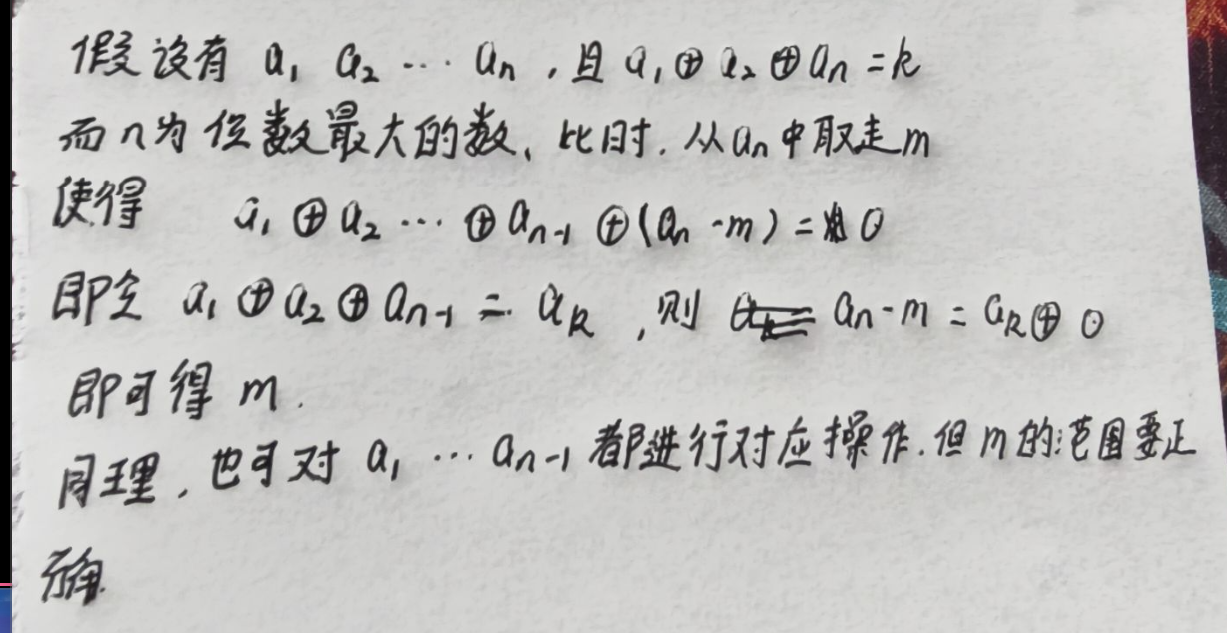 假设有 a₁ a₂ … aₙ ，且 a₁⊕a₂⊕aₙ=k
而n为位数最大的数、比时．从aₙ中取走m
使得 a₁⊕a₂…⊕aₙ₋₁⊕(aₙ-m)=0
即令 a₁⊕a₂⊕aₙ₋₁=aₖ ，则 aₙ-m=aₖ⊕0
即可得 m．
同理，也可对 a₁…aₙ₋₁都进行对应操作．但m的范围要正
确．